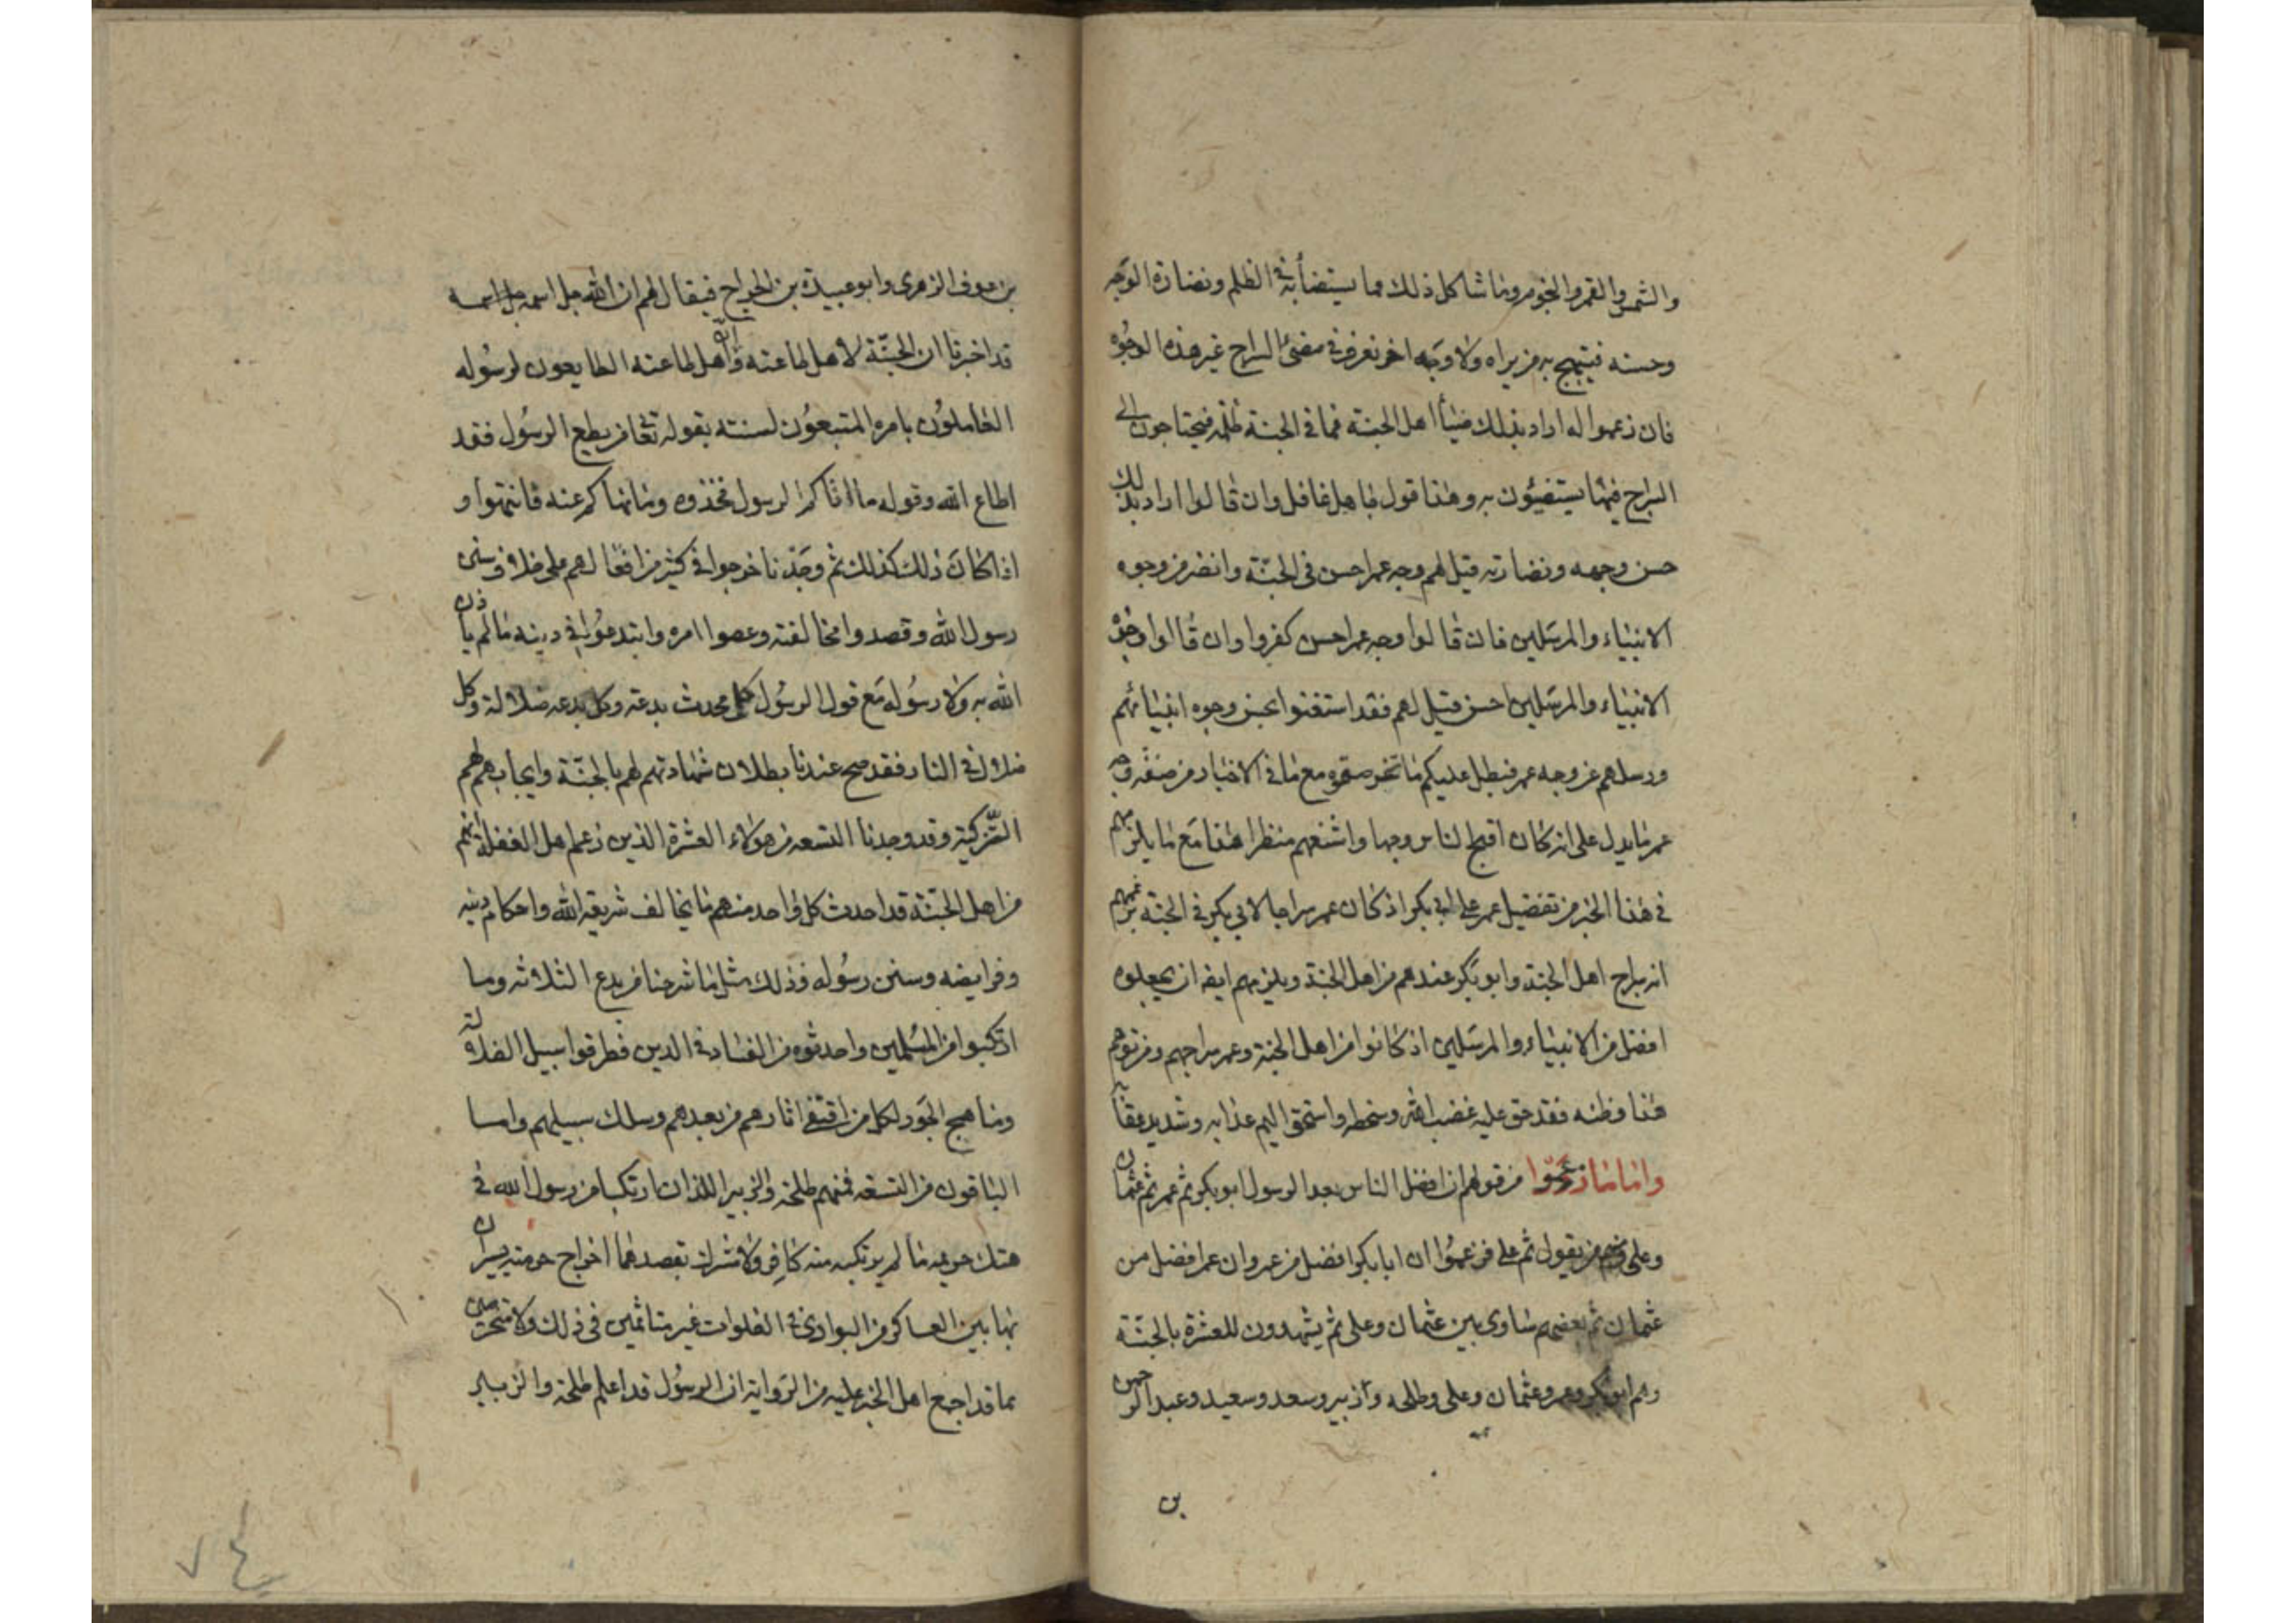 والشمس والقمر والنجوم وما شاكل ذلك مما يستضأ به في الظلم ونضارة الوجه
وحسنه فيبتهج به من يراه ولا وجه اخر نعرفه في معنى السراج غير هذه الوجوه
فان زعموا انه اراد بذلك ضياأ اهل الجنة فما في الجنة ظلمه فيحتاجون الى
السراج فيها يستضيئون به وهذا قول جاهل غافل وان قالوا اراد بذلك
حسن وجهه ونضارته قيل لهم وجه عمر احسن في الجنّة وانضر من وجوه
الانبياء والمرسَلين فان قالوا وجه عمر احسن كفروا وان قالوا وجوه
الانبياء والمرسَلين احسن قيل لهم فقد استغنوا بحسن وجوه انبيائهم
ورسلهم عن وجه عمر فبطل عليكم ما تخرصتموه مع ما في الاخبار من صفة وجه
عمر ما يدل على انه كان اقبح الناس وجها واشنعهم منظرا هذا مَع ما يلزمهم
في هذا الخبر من تفضيل عمر على ابي بكر اذ كان عمر سراجا لابي بكر في الجنة بزعمهم
انه سراج اهل الجنة وابو بكر عندهم من اهل الجنة ويلزمهم ايضا ان يجعلوه
افضل من الانبياء والمرسَلين اذ كانوا من اهل الجنة وعمر سراجهم ومن توهم
هذا وظنه فقد حق عليه غضب الله وسخطه واستحق اليم عذابه وشديد عقابه
واما ما زعموا من قولهم ان افضل الناس بعد الرسول ابو بكر ثم عمر ثم عثمان
وعلى ومنهم من يقول ثم على فزعموُا ان ابا بكر افضل من عمر وان عمر افضل من
عثمان ثم بعضهم ساوى بين عثمان وعلى ثم يشهدون للعشرة بالجنّة
وهم ابو بكر وعمر وعثمان وعلى وطلحه وزبير وسعد وسعيد وعبد الرحمن
بن
بن عوف الزهرى وابو عبيدة بن الجراح فيقال لهم ان الله جل اسمه جل اسمه
قد اخبرنا ان الجنّة لاهل طاعته وان اهل طاعته الطايعون لرسُوله
العاملوُن بامره المتبعوُن لسنته بقوله تعا من يطع الرسُول فقد
اطاع الله وقوله ما اتاكم الرسول فخذوه وما نهاكم عنه فانتهوا و
اذا كانَ ذلك كذلك ثم وجَدنا خرجوا في كثير من افعالهم على خلاف سنن
رسول الله وقصدوا مخالفته وعصوا امره وابتدعوُا في دينه ما لم ياذن
الله به ولا رسُوله مَع قول الرسُول كل محدث بدعة وكل بدعه ضلالة وكل
ضلال في النار فقد صح عندنا بطلان شهادتهم لهم بالجنّة وايجابهم لهم
التّزكية وقد وجدنا التسعه من هولاء العشرة الذين زعم اهل الغفلة انهم
من اهل الجنّة قد احدث كل واحد منهم ما يخالف شريعة الله واحكام دينه
وفرايضه وسنن رسُوله فذلك مثل ما شرحنا من بدع الثلاثه وما
ارتكبوا من المسُلمين واحدثوه من الفساد في الدين فطرقوا سبيل الضلالة
ومناهج الجَور لكل من اقتفى اثارهم من بعدهم وسلك سبيلهم واما
الباقون من التسعه فمنهم طلحة والزبير اللذان ارتكبا من رسول الله في
هتك حريمه ما لم يرتكبه منه كافر ولا مشرك بقصدهما اخراج حرمته يسيران
بها بين العساكر من البوادى في الفلوات غير متاثمين في ذلك ولا متحرجين
بما قد اجمع اهل الخبر عليه من الرَواية ان الرسُول قد اعلم طلحة والزبير
٧٤